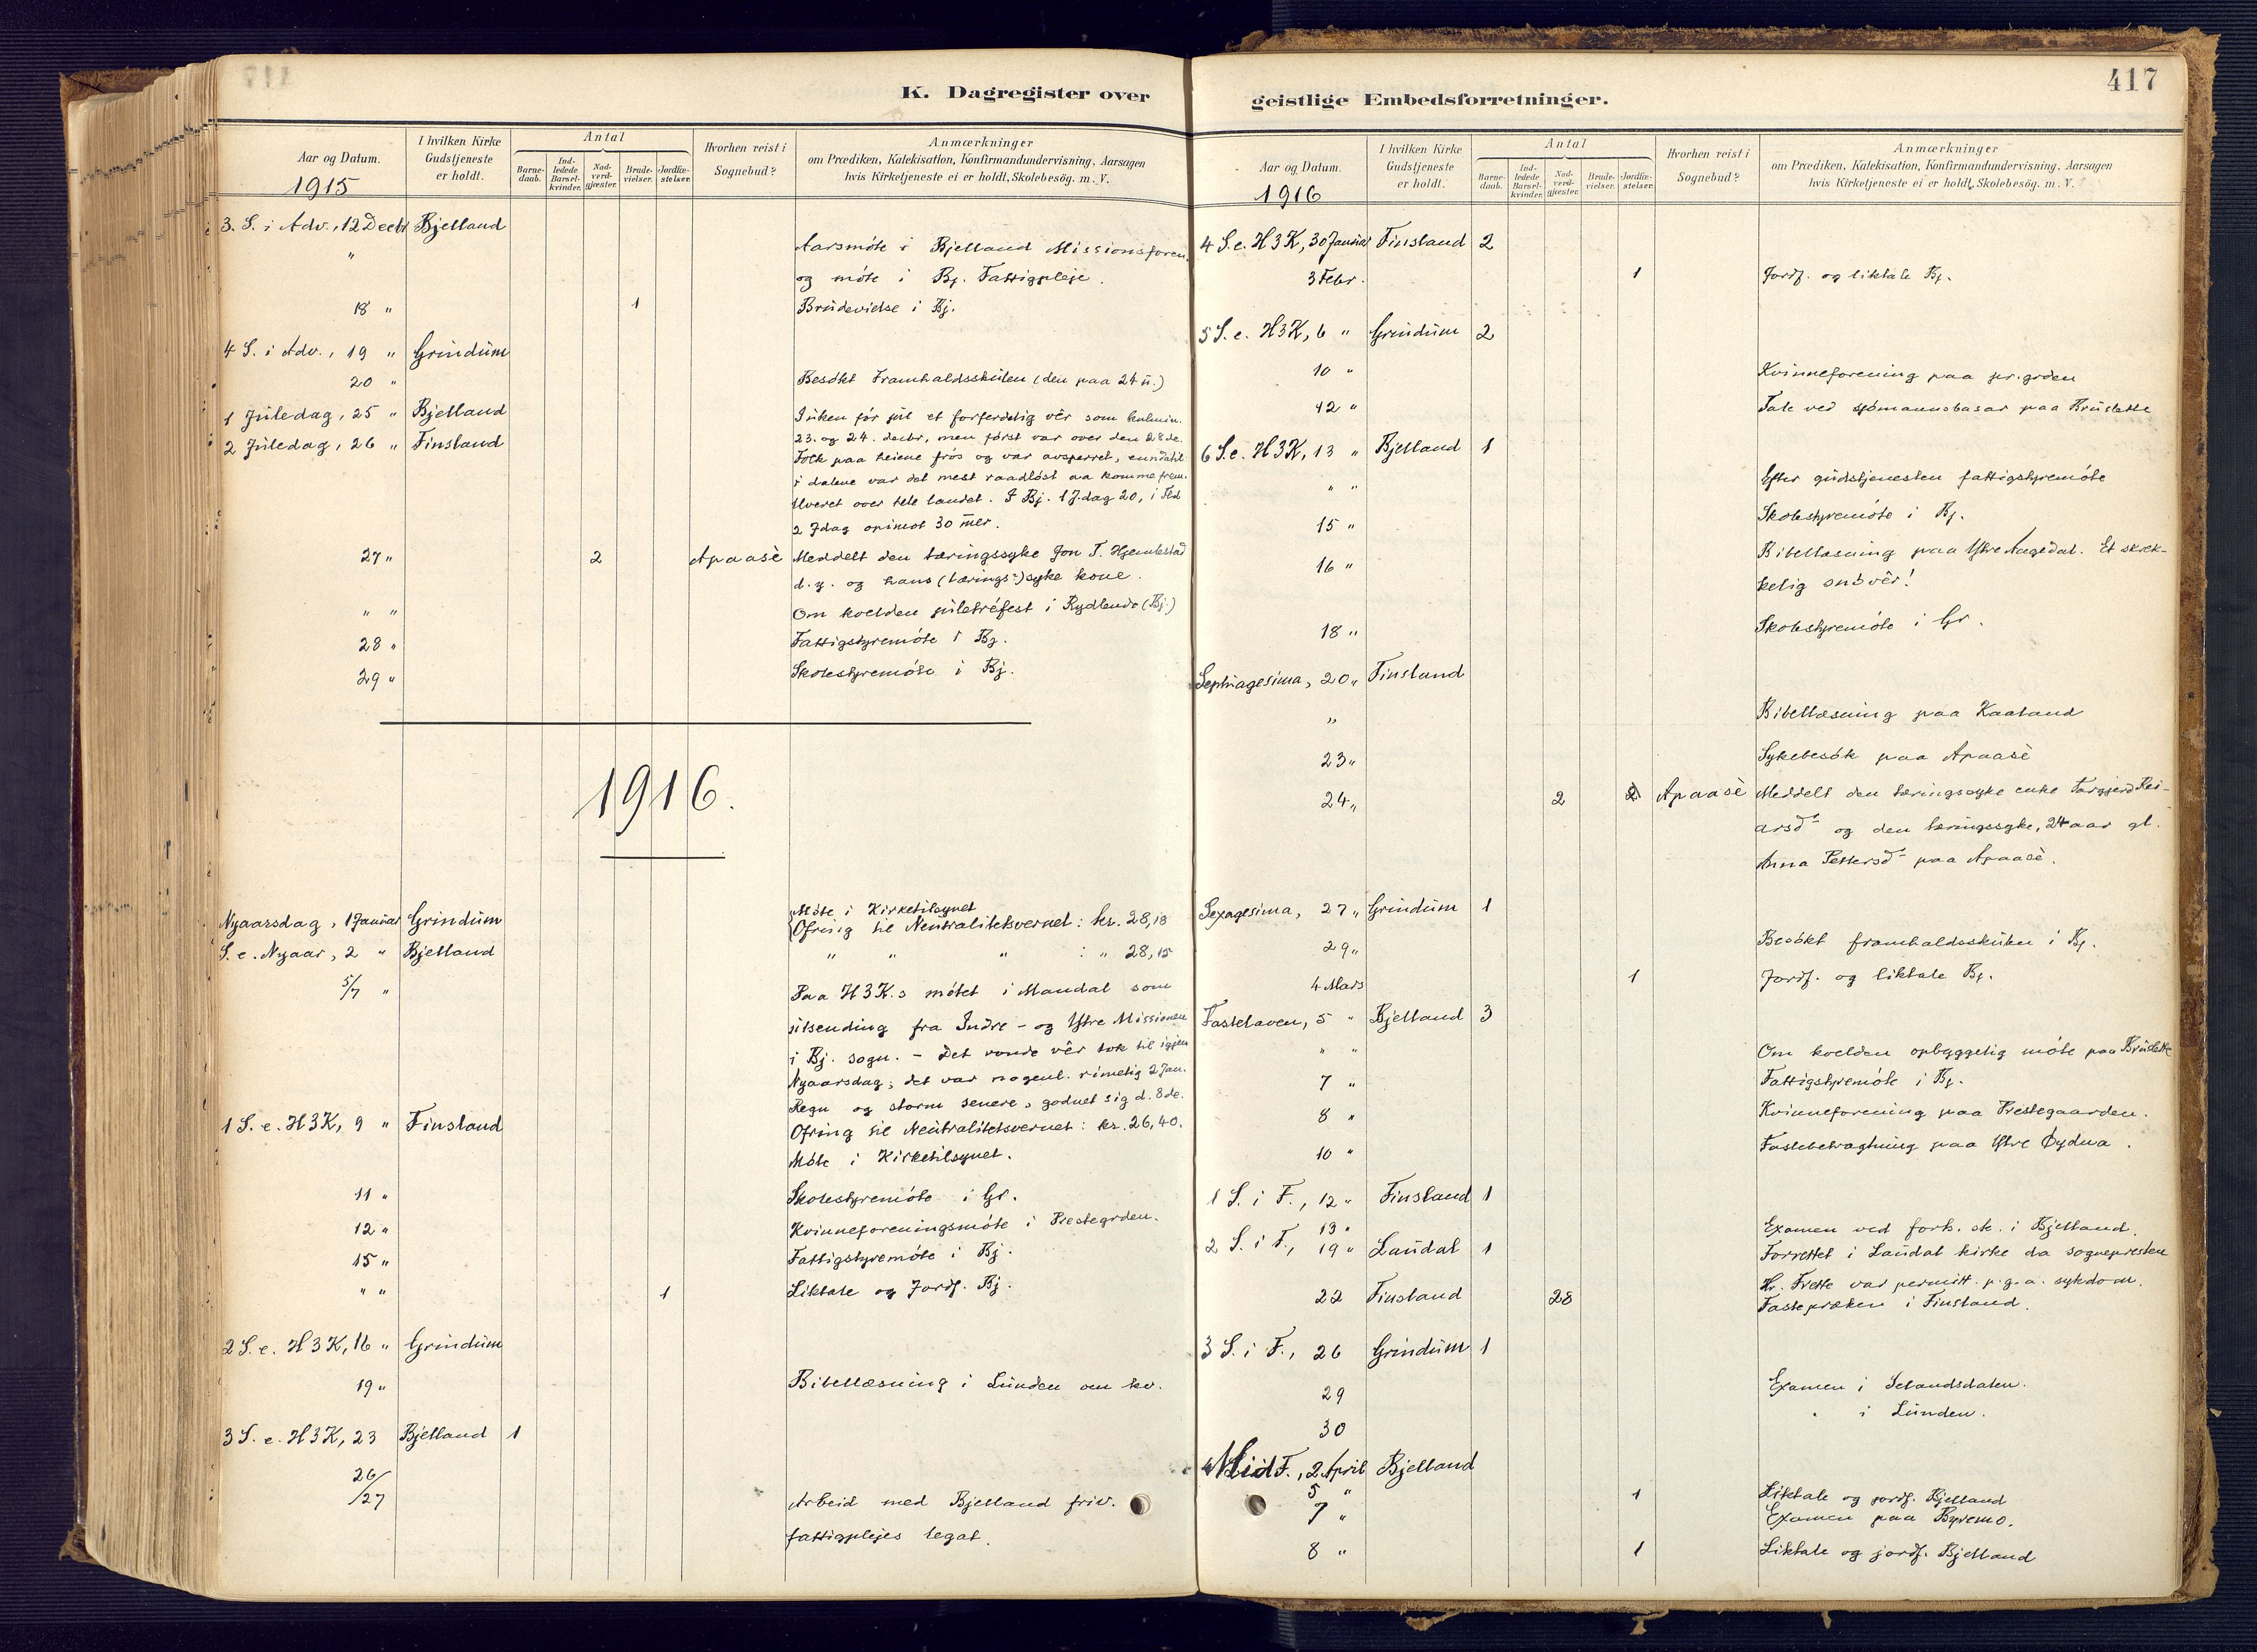 K. Dagregister over
Aar og Datum.
1915
I hvilken Kirke Gudstjeneste er holdt.
Antal
Barne-daab.
Ind-ledede Barsel-kvinder.
Nad-verd-gjæster.
Brude-vielser.
Jordfæ-stelser.
Hvorhen reist i Sognebud?
Anmærkninger
om Prædiken, Katekisation, Konfirmandundervisning, Aarsagen
hvis Kirketjeneste ei er holdt, Skolebesög. m. V.
3. S. i Adv., 12 Decbr Bjelland
" Aarsmöte i Bjelland Missionsforen.
og möte i Bj. Fattigpleje.
18 " 1 Brudevielse i Bj.
4 S. i Adv., 19 " Grindum
20 " Besökt Framhaldsskulen (den paa 24 u.)
1 Juledag, 25 " Bjelland Juken för jul et forferdelig vêr som kulmin.
2 Juledag, 26 " Finsland 23. og 24. decbr, men först var over den 28de.
Folk paa heiene frös og var avsperret, enndatil
i dalene var det mest raadlöst aa komme frem.
Uveret over hele landet. I Bj. 1 J.dag 20, i Fld
2 Jdag opimot 30 mer.
27 " 2 Apaasè Meddelt den tæringssyke Jon T. Hjemlestad
d. y. og hans (tærings-)syke kone.
" " Om kvelden juletréfest i Rydlende (Bj.)
28 " Fattigstyremöte i Bj.
29 " Skolestyremöte i Bj.
1916.
Möte i Kirketilsynet
Nyaarsdag, 1 Januar Grindum Ofring til Neutralitetsvernet: kr. 28,18
S. e. Nyaar, 2 " Bjelland " " " : " 28,15
5/7 " Paa H3K.s mötet i Mandal som
utsending fra Indre- og Ytre Missionen
i Bj. sogn. - Det vonde vêr tok til igjen
Nyaarsdag; det var nogenl. rimelig 2 Jan.
Regn og storm senere, godnet sig d. 8de.
1 S. e. H3K, 9 " Finsland Ofring til Neutralitetsvernet: kr. 26,40.
Möte i Kirketilsynet.
11 " Skolestyremöte i Gr.
12 " Kvinneforeningsmöte i Prestegrden.
15 " Fattigstyremöte i Bj.
" " 1 Liktale og Jordf. Bj.
2 S. e. H3K, 16 " Grindum
19 " Bibellæsning i Lunden om kv.
3 S. e. H3K, 23 Bjelland 1
26/27 Arbeid med Bjelland friv.
fattigplejes legat.
geistlige Embedsforretninger.
417
Aar og Datum.
1916
I hvilken Kirke Gudstjeneste er holdt.
Antal
Barne-daab.
Ind-ledede Barsel-kvinder.
Nad-verd-gjæster.
Brude-vielser.
Jordfæ-stelser.
Hvorhen reist i Sognebud?
Anmærkninger
om Prædiken, Katekisation, Konfirmandundervisning, Aarsagen
hvis Kirketjeneste ei er holdt, Skolebesög. m. V.
4 S. e. H3K, 30 Januar Finsland 2
3 Febr. 1 Jordf. og liktale Bj.
5 S. e. H3K, 6 " Grindum 2
10 " Kvinneforening paa pr.grden
12 " Tale ved sjömannsbasar paa Bruslette
6 S. e. H3K, 13 " Bjelland 1
" " Efter gudstjenesten fattigstyremöte
15 " Skolestyremöte i Bj.
16 " Bibellæsning paa Ytre Aagedal. Et skrek-
kelig ondvêr!
18 " Skolestyremöte i Gr.
Septuagesima, 20 " Finsland
" Bibellæsning paa Kaaland
23 " Sykebesök paa Apaasè
24 " 2 Apaasè Meddelt den tæringssyke enke Targjerd Rei-
arsd. og den tæringssyke, 24 aar gl.
Anna Pettersd. paa Apaasè.
Sexagesima, 27 " Grindum 1
29 " Besökt framhaldsskulen i Bj.
4 Mars 1 Jordf. og liktale Bj.
Fastelaven, 5 " Bjelland 3
" " Om kvelden opbyggelig möte paa Bruslette
7 " Fattigstyremöte i Bj.
8 " Kvinneforening paa Prestegaarden.
10 " Fastebetragtning paa Ytre Øydna.
1 S. i F., 12 " Finsland 1
13 " Examen ved forb. sk. i Bjelland.
2 S. i F., 19 " Laudal 1 Forrettet i Laudal kirke da sognepresten
Hr. Frette var permitt. p.g.a. sykdom.
22 Finsland 28 Fastepræken i Finsland.
3 S. i F., 26 Grindum 1
29 Examen i Selandsdalen.
30 " i Lunden.
Mid F., 2 April Bjelland
5 " 1 Liktale og jordf. Bjelland
7 " Examen paa Byremo.
8 " 1 Liktale og jordf. Bjelland